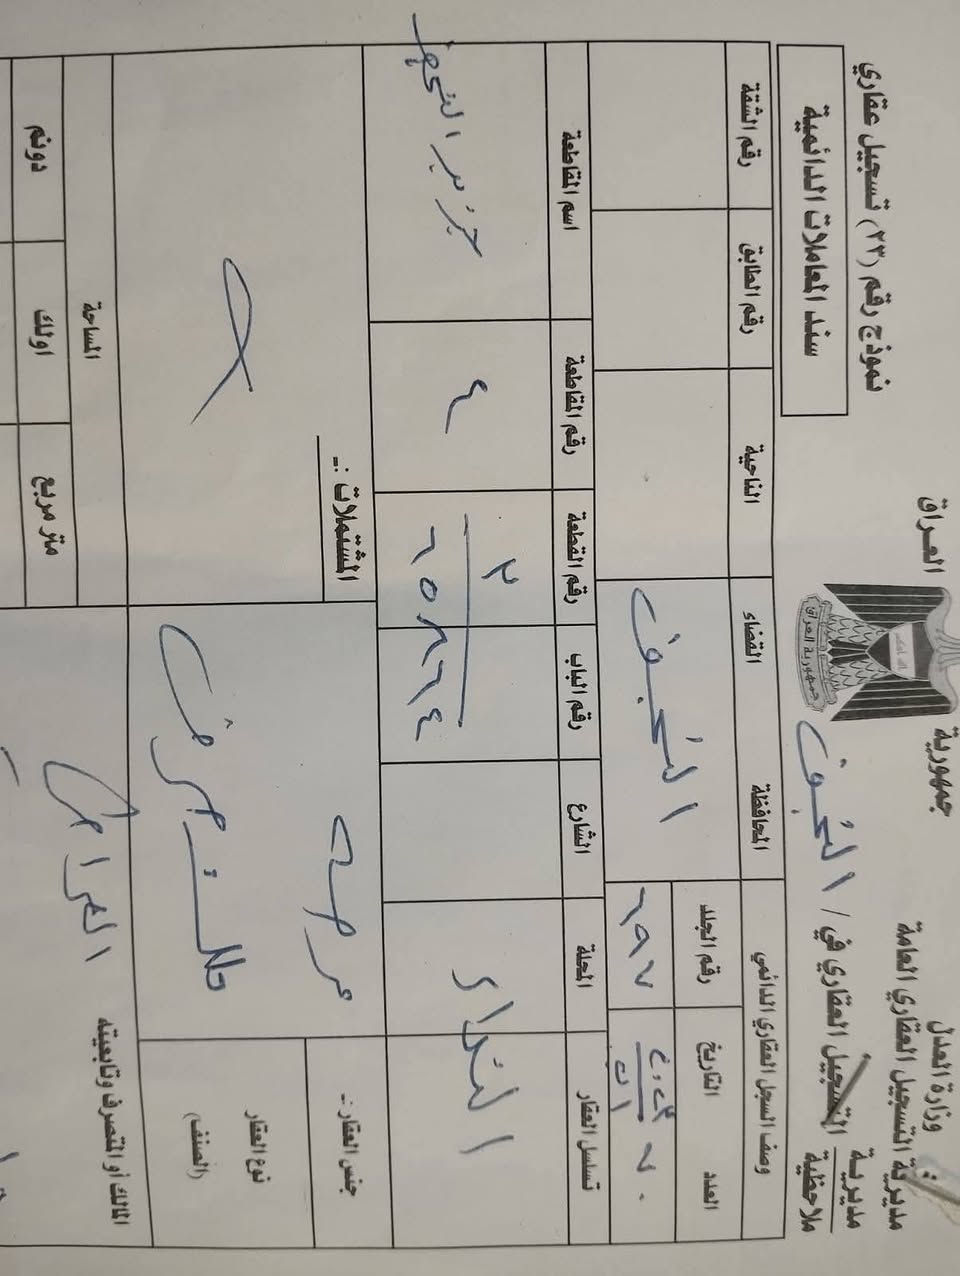 جمهورية
العراق
وزارة العدل
مديرية التسجيل العقاري العامة
مديرية
ملاحظية
التسجيل العقاري في / النجف
نموذج رقم (٢٣) تسجيل عقاري
سند المعاملات الدائمية
وصف السجل العقاري الدائمي
المحافظة
القضاء
الناحية
رقم الطابق
رقم الشقة
العدد
التاريخ
رقم الجلد
٦٩٧
النجف
تسلسل العقار
المحلة
الشارع
رقم الباب
رقم القطعة
رقم المقاطعة
اسم المقاطعة
النداء
٣
٦٥٨٦٦٤
٤
جزيرة النجف
جنس العقار :-
عرصه
المشتملات :-
نوع العقار
(الصنف)
ملك صرف
المالك أو المتصرف وتابعيته
المساحة
متر مربع
اولك
دونم